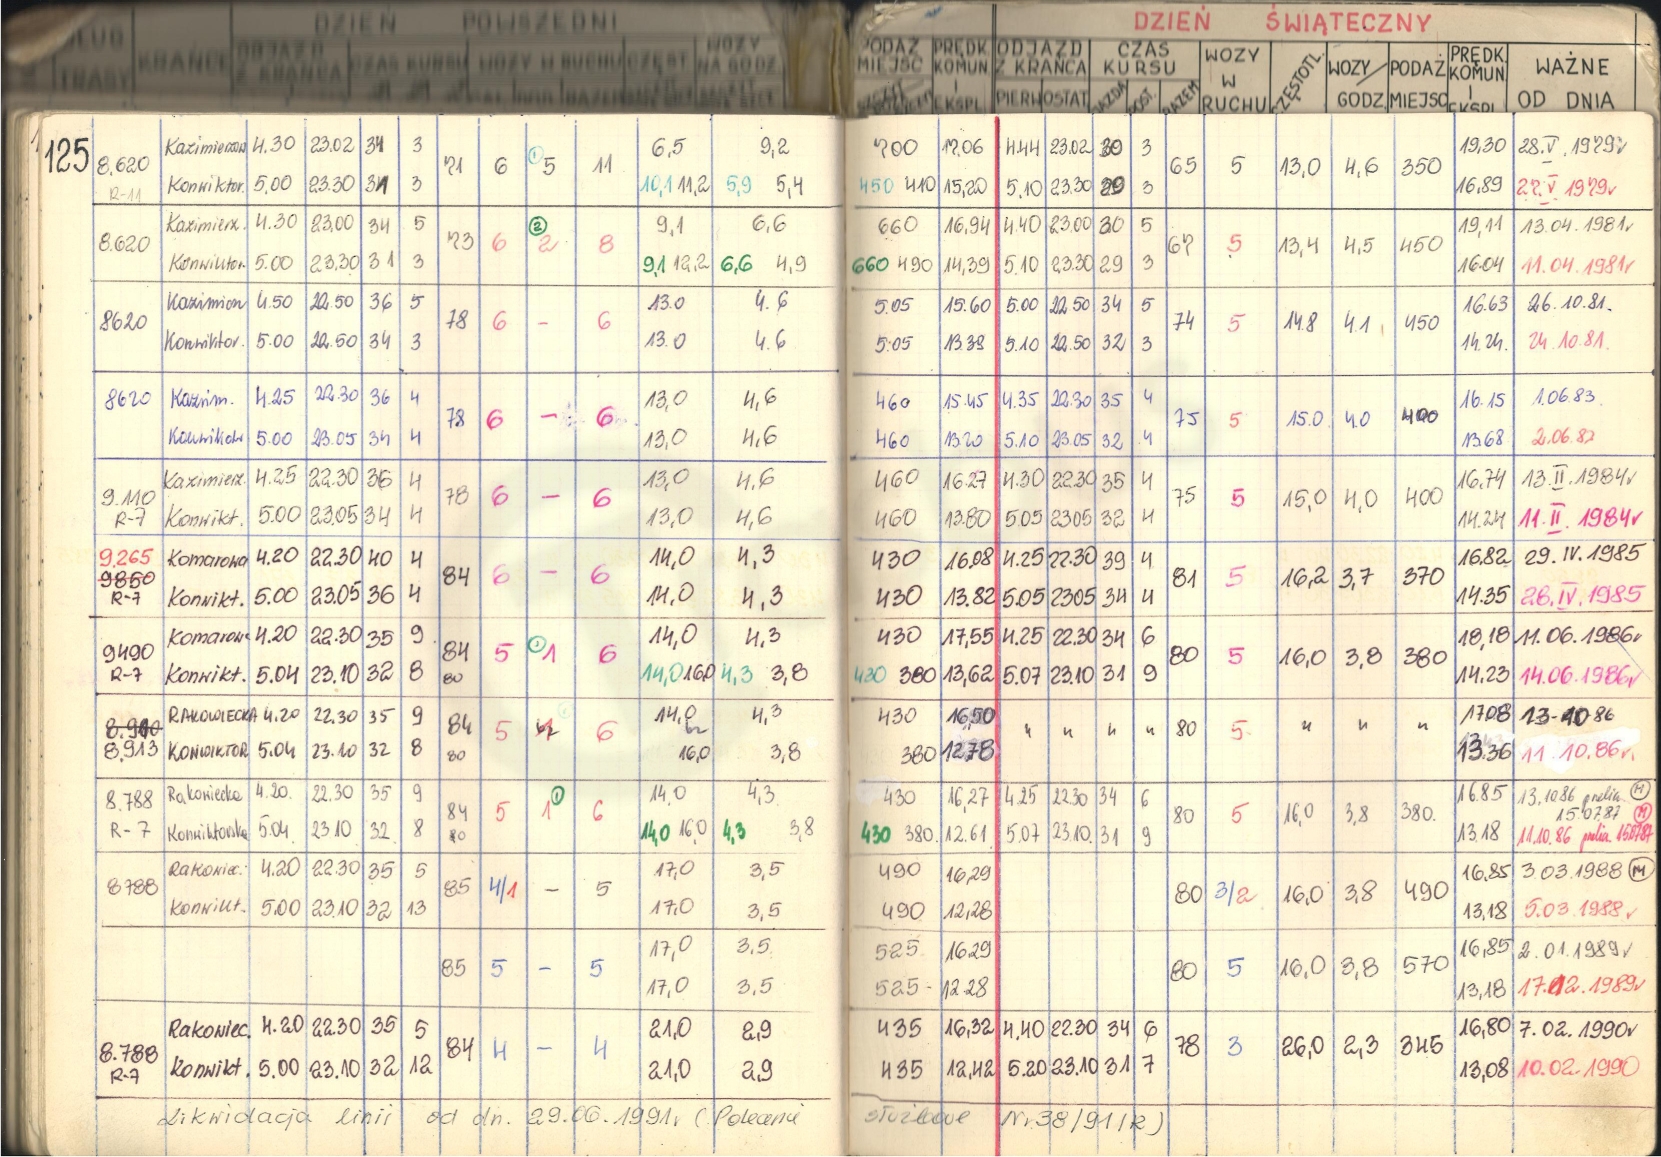 DZIEŃ POWSZEDNI
DŁUG. TRASY KRAŃCE ODJAZD Z KRAŃCA CZAS KURSU WOZY W RUCHU CZĘST WOZY NA GODZ.
DZIEŃ ŚWIĄTECZNY
PODAŻ MIEJSC PRĘDK. KOMUN. I EKSPL. ODJAZD Z KRAŃCA CZAS KURSU WOZY W RUCHU CZĘSTOTL. WOZY GODZ. PODAŻ MIEJSC PRĘDK. KOMUN. I EKSPL. WAŻNE OD DNIA
PIERW OSTAT JAZDA POST. RAZEM
125 8.620 Kazimierzow 4.30 23.02 34 3 71 6 ① 5 11 6,5 9,2 700 17,06 4.44 23.02 30 3 65 5 13,0 4,6 350 19,30 28.V.1979r
R-11 Konwiktor. 5.00 23.30 31 3 10,1 11,2 5,9 5,4 450 410 15,20 5.10 23.30 29 3 16,89 27.V 1979r
8.620 Kazimierz. 4.30 23.00 34 5 73 6 ② 2 8 9,1 6,6 660 16,94 4.40 23.00 30 5 67 5 13,4 4,5 450 19,11 13.04.1981r
Konwiktor. 5.00 23.30 31 3 9,1 12,2 6,6 4,9 660 490 14,39 5.10 23.30 29 3 16.04 11.04.1981r
8620 Kazimierz 4.50 22.50 36 5 78 6 - 6 13.0 4.6 5.05 15.60 5.00 22.50 34 5 74 5 14.8 4.1 450 16.63 26.10.81.
Konwiktor. 5.00 22.50 34 3 13.0 4.6 5.05 13.38 5.10 22.50 32 3 14.24. 24.10.81.
8620 Kazim. 4.25 22.30 36 4 78 6 - 6 13,0 4,6 460 15.45 4.35 22.30 35 4 75 5 15.0 4.0 400 16.15 1.06.83.
Konwiktor 5.00 23.05 34 4 13,0 4,6 460 13.20 5.10 23.05 32 4 13.68 2.06.82
9.110 Kazimierz. 4.25 22.30 36 4 78 6 - 6 13,0 4,6 460 16.27 4.30 22.30 35 4 75 5 15,0 4,0 400 16,74 13.II.1984r
R-7 Konwikt. 5.00 23.05 34 4 13,0 4,6 460 13.80 5.05 2305 32 4 14.24 11.II.1984r
9.265 Komarowa 4.20 22.30 40 4 84 6 - 6 14,0 4,3 430 16,08 4.25 22.30 39 4 81 5 16,2 3,7 370 16,82 29.IV.1985
9850
R-7 Konwikt. 5.00 23.05 36 4 14,0 4,3 430 13.82 5.05 2305 34 4 14.35 28.IV.1985
9490 Komarowa 4.20 22.30 35 9 84 5 ① 1 6 14,0 4,3 430 17,55 4.25 22.30 34 6 80 5 16,0 3,8 380 18,18 11.06.1986r
R-7 Konwikt. 5.04 23.10 32 8 80 14,0 16,0 4,3 3,8 430 380 13,62 5.07 23.10 31 9 14.23 14.06.1986r
RAKOWIECKA 4.20 22.30 35 9 84 5 6 14,0 4,3 430 16,50 " " " " 80 5 " " " 17.08 13-10 86
8,913 KONWIKTOR 5.04 23.10 32 8 80 16,0 3,8 380 12.78 13.36 11.10.86r.
8.788 Rakowiecka 4.20. 22.30 35 9 84 5 1 ① 6 14,0 4,3 430 16,27 4.25 22.30 34 6 80 5 16,0 3,8 380. 16.85 13.10.86 prelim. 15.07.87 Ⓜ
R-7 Konwiktorska 5.04 23.10 32 8 80 14,0 16,0 4,3 3,8 430 380. 12.61 5.07 23.10. 31 9 13.18 11.10.86 Ⓜ
8788 Rakowiec. 4.20 22.30 35 5 85 4/1 - 5 17,0 3,5 490 16,29 80 3/2 16,0 3,8 490 16,85 3.03.1988 Ⓜ
Konwikt. 5.00 23.10 32 13 17,0 3,5 490 12,28 13,18 5.03.1988r
85 5 - 5 17,0 3,5 525 16.29 80 5 16,0 3,8 570 16,85 2.01.1989r
17,0 3,5 525- 12.28 13,18 17.12.1989r
8.788 Rakowiec. 4.20 22.30 35 5 84 4 - 4 21,0 2,9 435 16,32 4.40 22.30 34 6 78 3 26,0 2,3 345 16,80 7.02.1990r
R-7 Konwikt. 5.00 23.10 32 12 21,0 2,9 435 12,42 5.20 23.10 31 7 13,08 10.02.1990
Likwidacja linii od dn. 29.06.1991r (Polecenie służbowe Nr 38/91/R)